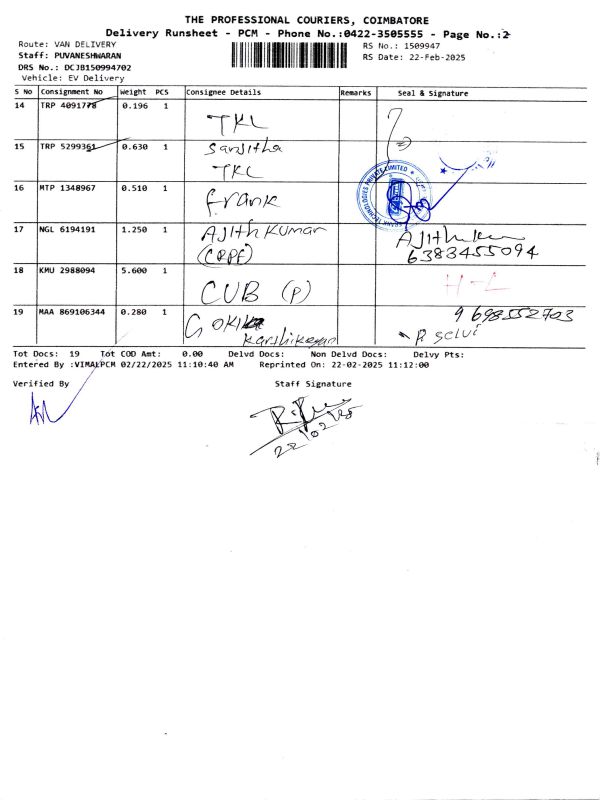 THE PROFESSIONAL COURIERS, COIMBATORE
Delivery Runsheet - PCM - Phone No.:0422-3505555 - Page No.:2
Route: VAN DELIVERY
RS No.: 1509947
Staff: PUVANESHWARAN
RS Date: 22-Feb-2025
DRS No.: DCJB150994702
Vehicle: EV Delivery
S No Consignment No Weight PCS Consignee Details Remarks Seal & Signature
14 TRP 4091778 0.196 1 TKL
15 TRP 5299361 0.630 1 Sanjitha
TKL
16 MTP 1348967 0.510 1 Frank
TECHNOLOGIES PRIVATE LIMITED
17 NGL 6194191 1.250 1 Ajith Kumar
(CRPF)
Ajith Kum
6383455094
18 KMU 2988094 5.600 1 CUB (P) H-L
19 MAA 869106344 0.280 1 Gokika
Karthikeyan
9698552703
P. Selvi
Tot Docs: 19 Tot COD Amt: 0.00 Delvd Docs: Non Delvd Docs: Delvy Pts:
Entered By :VIMALPCM 02/22/2025 11:10:40 AM Reprinted On: 22-02-2025 11:12:00
Verified By Staff Signature
22/02/25